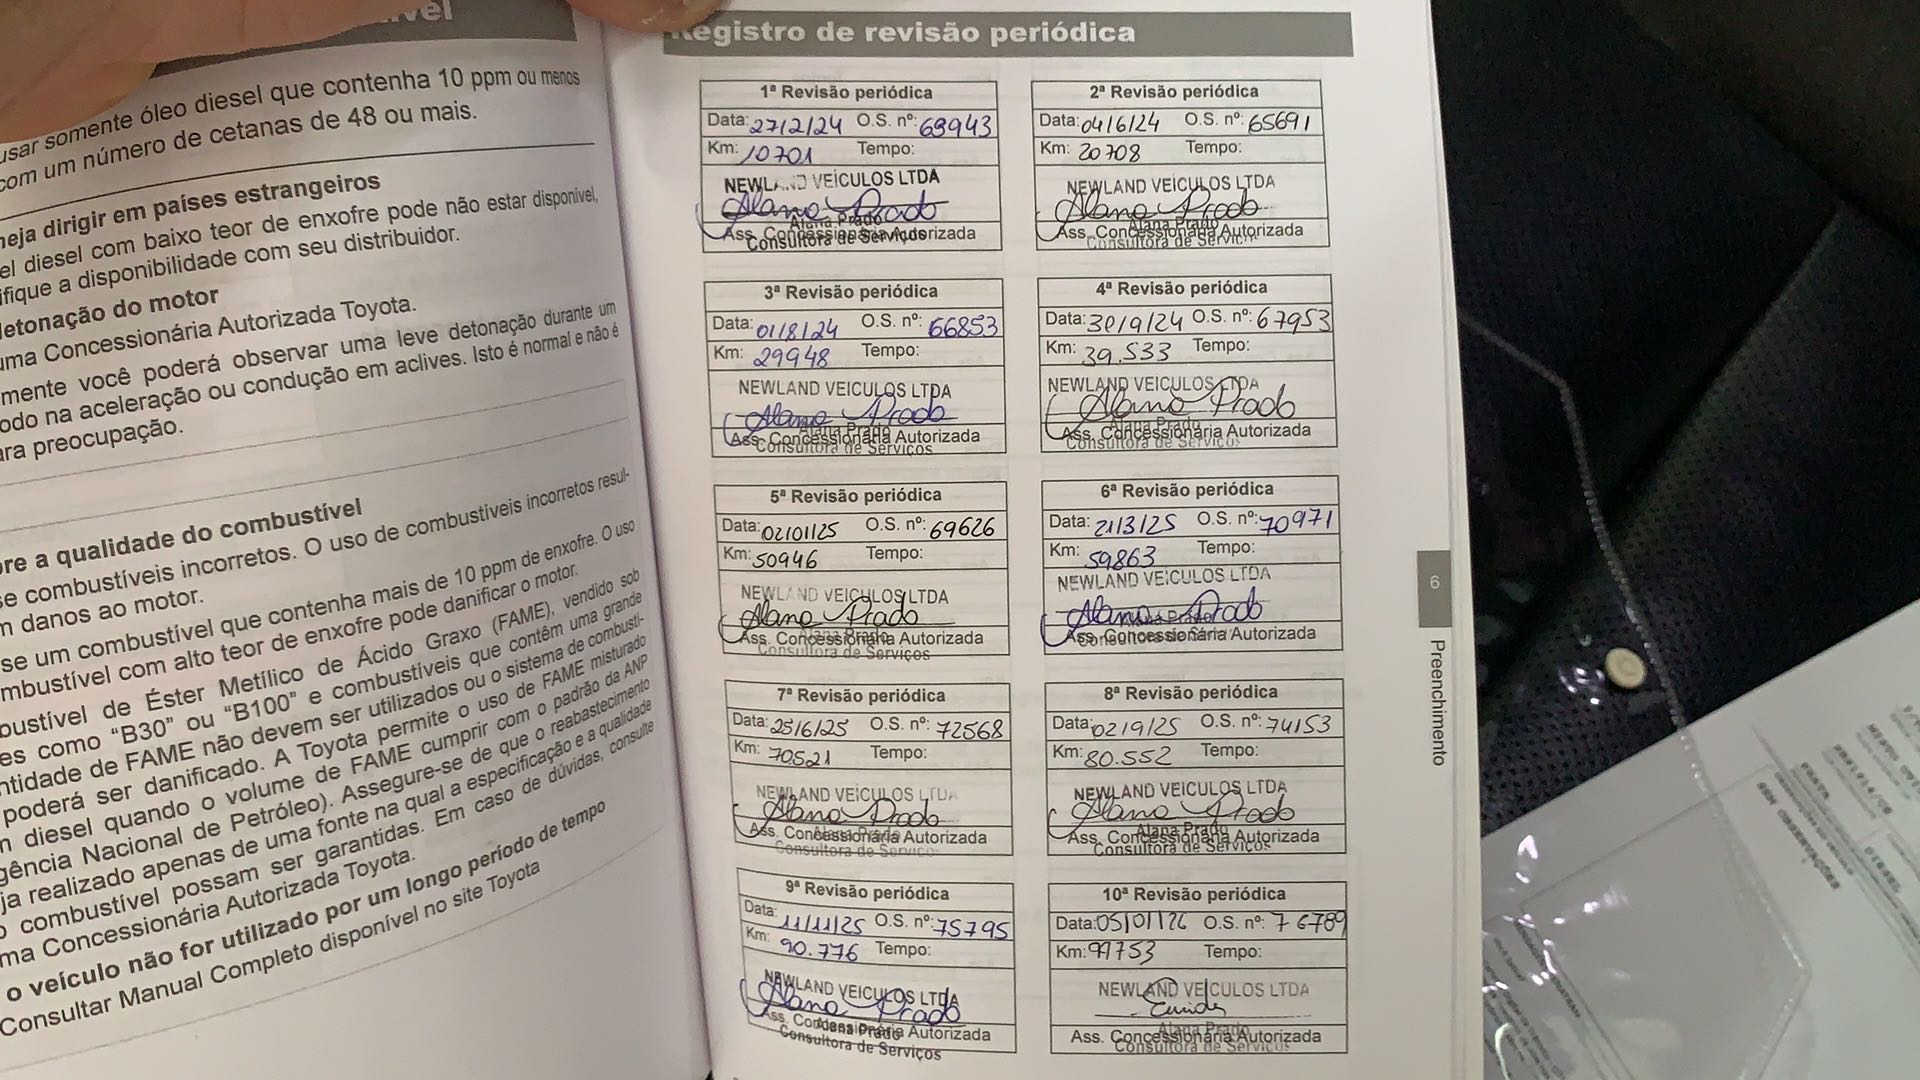 usar somente óleo diesel que contenha 10 ppm ou menos
com um número de cetanas de 48 ou mais.
neja dirigir em países estrangeiros
el diesel com baixo teor de enxofre pode não estar disponível,
ifique a disponibilidade com seu distribuidor.
detonação do motor
uma Concessionária Autorizada Toyota.
mente você poderá observar uma leve detonação durante um
odo na aceleração ou condução em aclives. Isto é normal e não é
ara preocupação.
re a qualidade do combustível
se combustíveis incorretos. O uso de combustíveis incorretos resul-
m danos ao motor.
se um combustível que contenha mais de 10 ppm de enxofre. O uso
mbustível com alto teor de enxofre pode danificar o motor.
bustível de Éster Metílico de Ácido Graxo (FAME), vendido sob
es como “B30” ou “B100” e combustíveis que contêm uma grande
ntidade de FAME não devem ser utilizados ou o sistema de combustí-
poderá ser danificado. A Toyota permite o uso de FAME misturado
m diesel quando o volume de FAME cumprir com o padrão da ANP
gência Nacional de Petróleo). Assegure-se de que o reabastecimento
ja realizado apenas de uma fonte na qual a especificação e a qualidade
o combustível possam ser garantidas. Em caso de dúvidas, consulte
ma Concessionária Autorizada Toyota.
o veículo não for utilizado por um longo período de tempo
Consultar Manual Completo disponível no site Toyota
Registro de revisão periódica
1ª Revisão periódica
Data: 27/2/24 O.S. nº: 63943
Km: 10701 Tempo:
NEWLAND VEÍCULOS LTDA
Alana Prado
Alana Prado
Ass. Concessionária Autorizada
Consultora de Serviços
2ª Revisão periódica
Data: 04/6/24 O.S. nº: 65691
Km: 20708 Tempo:
NEWLAND VEÍCULOS LTDA
Alana Prado
Alana Prado
Ass. Concessionária Autorizada
Consultora de Serviç
3ª Revisão periódica
Data: 01/8/24 O.S. nº: 66853
Km: 29948 Tempo:
NEWLAND VEICULOS LTDA
Alana Prado
Alana Prado
Ass. Concessionária Autorizada
Consultora de Serviços
4ª Revisão periódica
Data: 30/9/24 O.S. nº: 67953
Km: 39.533 Tempo:
NEWLAND VEICULOS LTDA
Alana Prado
Alana Prado
Ass. Concessionária Autorizada
Consultora de Serviços
5ª Revisão periódica
Data: 02/01/25 O.S. nº: 69626
Km: 50946 Tempo:
NEWLAND VEÍCULOS LTDA
Alana Prado
Alana Prado
Ass. Concessionária Autorizada
Consultora de Serviços
6ª Revisão periódica
Data: 21/3/25 O.S. nº: 70971
Km: 59863 Tempo:
NEWLAND VEÍCULOS LTDA
Alana Prado
Alana Prado
Ass. Concessionária Autorizada
Consultora de Ser
7ª Revisão periódica
Data: 25/6/25 O.S. nº: 72568
Km: 70521 Tempo:
NEWLAND VEÍCULOS LTDA
Alana Prado
Alana Prado
Ass. Concessionária Autorizada
Consultora de Serviç
8ª Revisão periódica
Data: 02/9/25 O.S. nº: 74153
Km: 80.552 Tempo:
NEWLAND VEÍCULOS LTDA
Alana Prado
Alana Prado
Ass. Concessionária Autorizada
Consultora de Serviços
9ª Revisão periódica
Data: 11/11/25 O.S. nº: 75795
Km: 90.776 Tempo:
NEWLAND VEÍCULOS LTDA
Alana Prado
Ass. Concessionária Autorizada
Alana Prado
Consultora de Serviços
10ª Revisão periódica
Data: 05/01/26 O.S. nº: 76789
Km: 99753 Tempo:
NEWLAND VEÍCULOS LTDA
Alana Prado
Ass. Concessionária Autorizada
Consultora de Serviços
6
Preenchimento